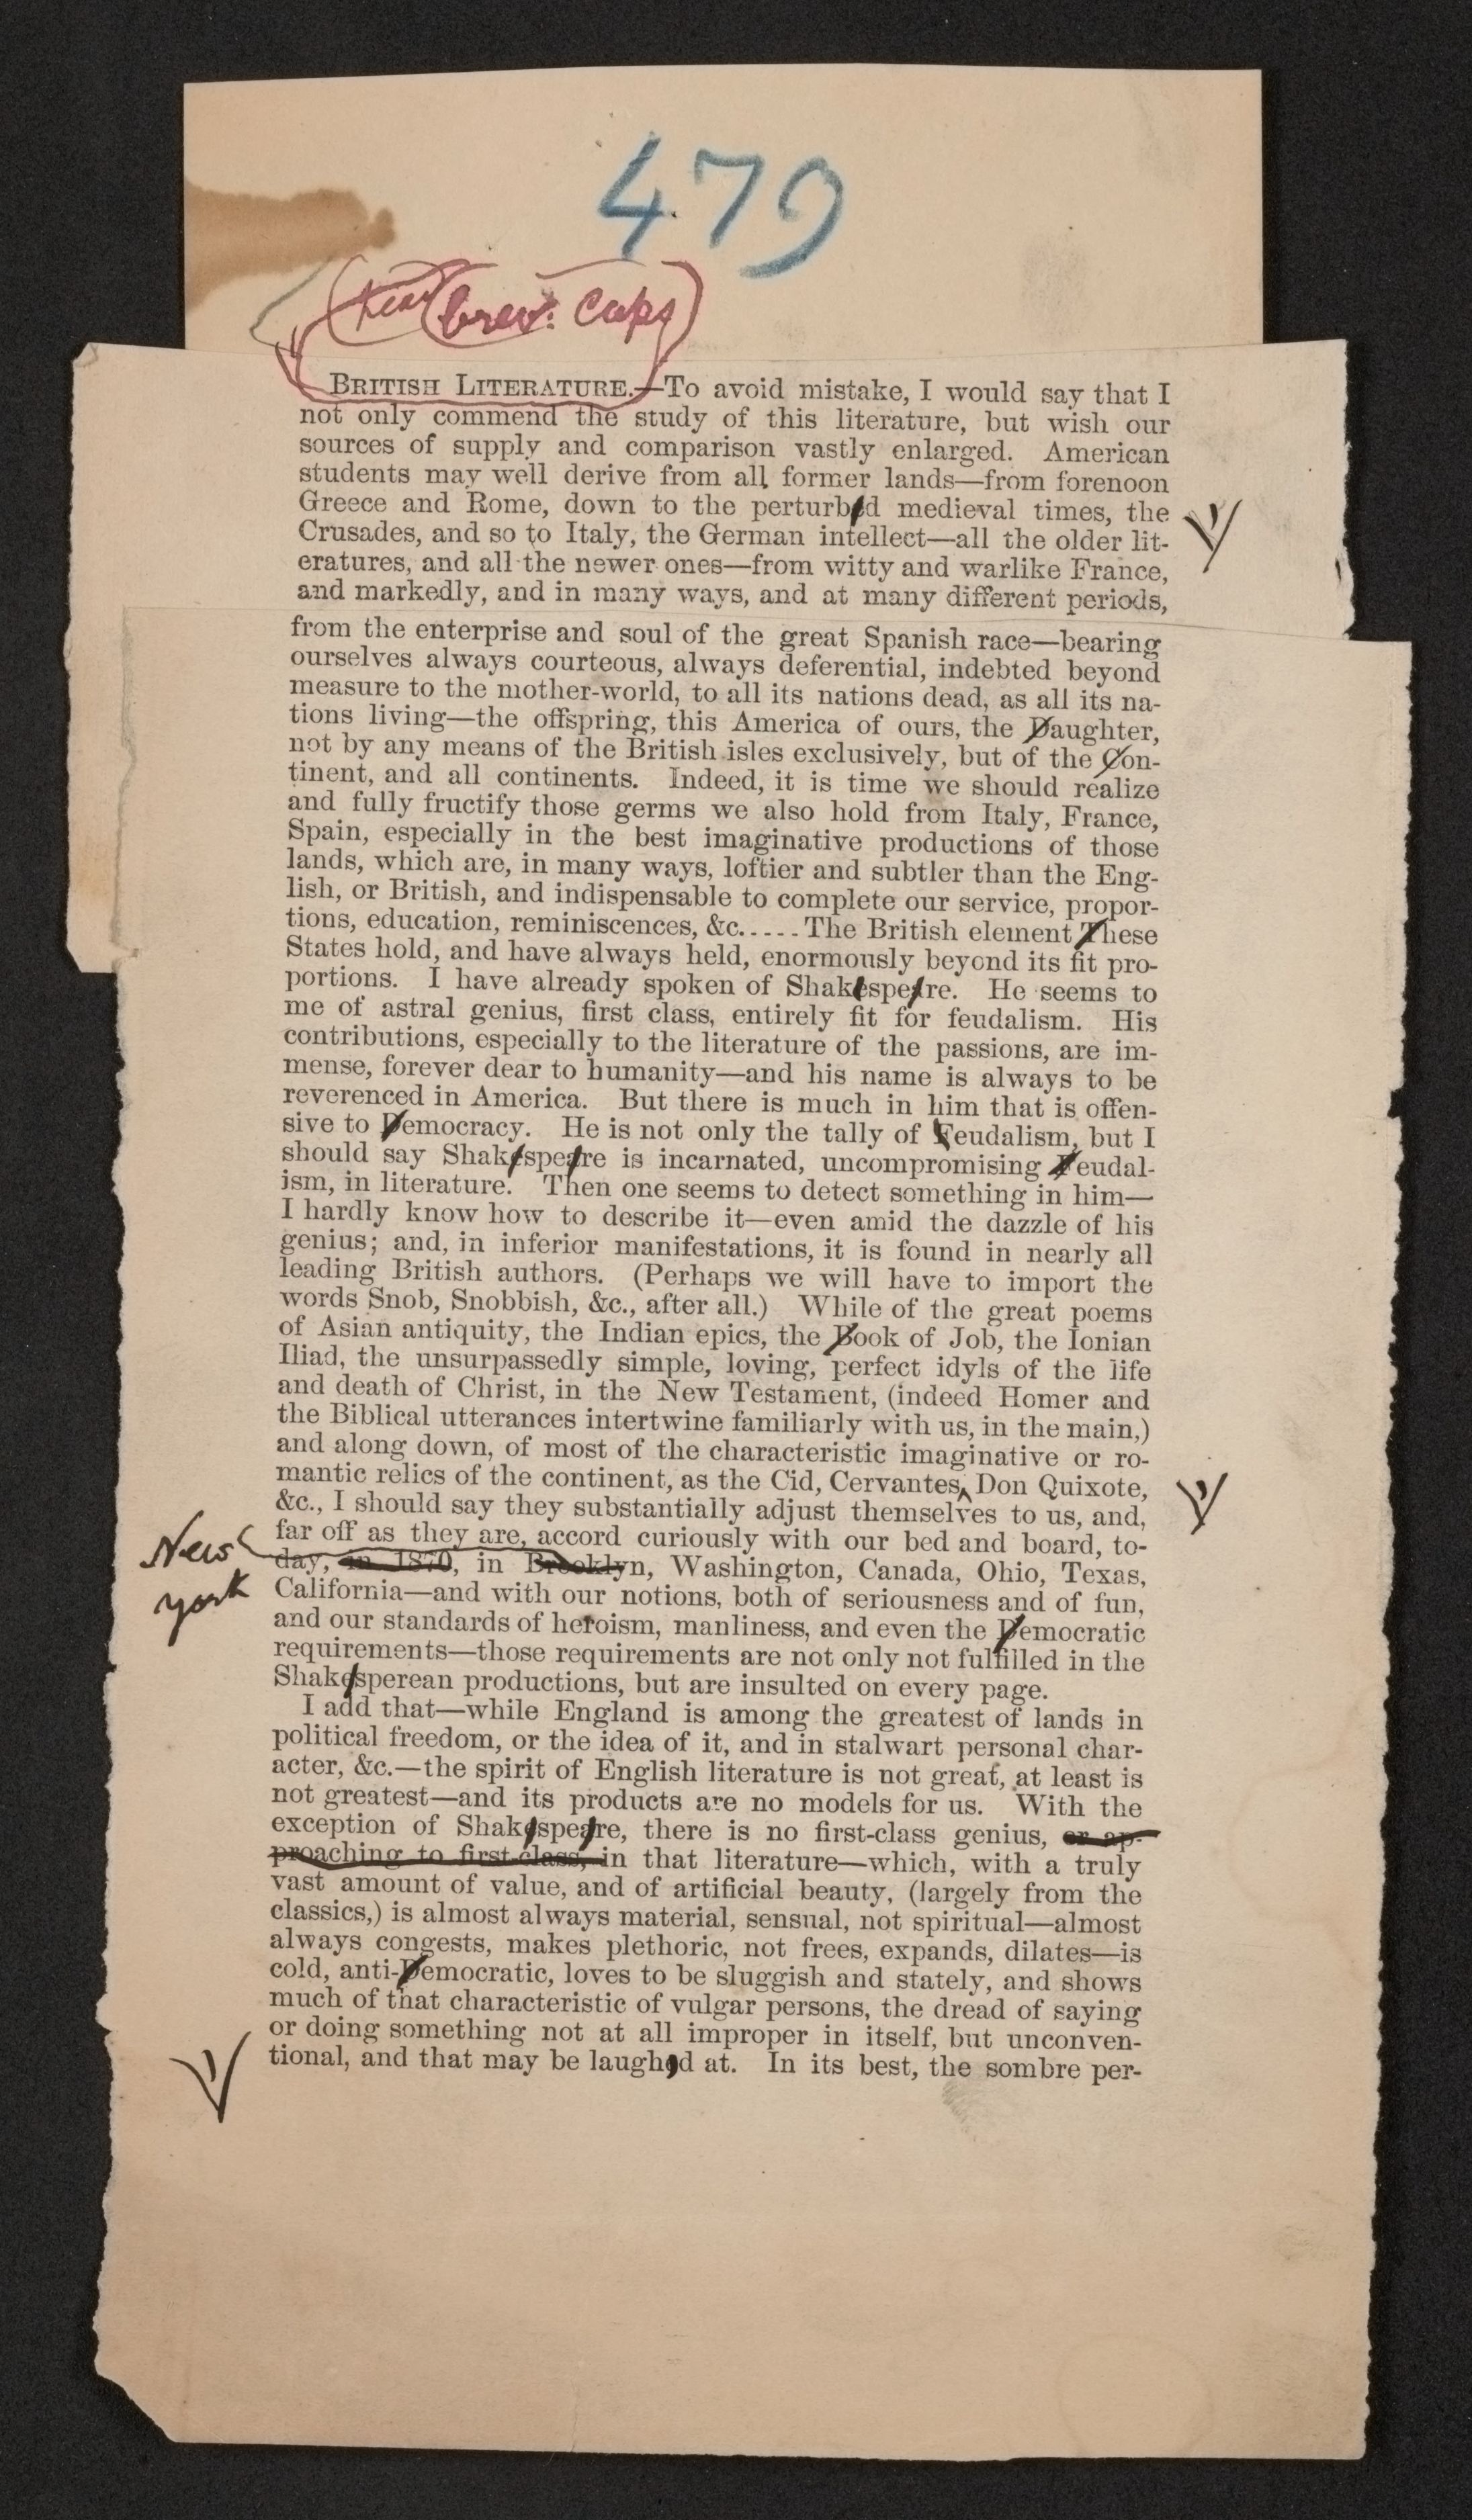 479
brev: Caps
BRITISH LITERATURE.—To avoid mistake, I would say that I
not only commend the study of this literature, but wish our
sources of supply and comparison vastly enlarged. American
students may well derive from all former lands—from forenoon
Greece and Rome, down to the perturbed medieval times, the
Crusades, and so to Italy, the German intellect—all the older lit-
eratures, and all the newer ones—from witty and warlike France,
and markedly, and in many ways, and at many different periods,
from the enterprise and soul of the great Spanish race—bearing
ourselves always courteous, always deferential, indebted beyond
measure to the mother-world, to all its nations dead, as all its na-
tions living—the offspring, this America of ours, the Daughter,
not by any means of the British isles exclusively, but of the Con-
tinent, and all continents. Indeed, it is time we should realize
and fully fructify those germs we also hold from Italy, France,
Spain, especially in the best imaginative productions of those
lands, which are, in many ways, loftier and subtler than the Eng-
lish, or British, and indispensable to complete our service, propor-
tions, education, reminiscences, &c.....The British element These
States hold, and have always held, enormously beyond its fit pro-
portions. I have already spoken of Shakespeare. He seems to
me of astral genius, first class, entirely fit for feudalism. His
contributions, especially to the literature of the passions, are im-
mense, forever dear to humanity—and his name is always to be
reverenced in America. But there is much in him that is offen-
sive to Democracy. He is not only the tally of Feudalism, but I
should say Shakespeare is incarnated, uncompromising Feudal-
ism, in literature. Then one seems to detect something in him—
I hardly know how to describe it—even amid the dazzle of his
genius; and, in inferior manifestations, it is found in nearly all
leading British authors. (Perhaps we will have to import the
words Snob, Snobbish, &c., after all.) While of the great poems
of Asian antiquity, the Indian epics, the Book of Job, the Ionian
Iliad, the unsurpassedly simple, loving, perfect idyls of the life
and death of Christ, in the New Testament, (indeed Homer and
the Biblical utterances intertwine familiarly with us, in the main,)
and along down, of most of the characteristic imaginative or ro-
mantic relics of the continent, as the Cid, Cervantes Don Quixote,
&c., I should say they substantially adjust themselves to us, and,
far off as they are, accord curiously with our bed and board, to-
New York
day, in 1870, in Brooklyn, Washington, Canada, Ohio, Texas,
California—and with our notions, both of seriousness and of fun,
and our standards of heroism, manliness, and even the Democratic
requirements—those requirements are not only not fulfilled in the
Shakesperean productions, but are insulted on every page.
I add that—while England is among the greatest of lands in
political freedom, or the idea of it, and in stalwart personal char-
acter, &c.—the spirit of English literature is not great, at least is
not greatest—and its products are no models for us. With the
exception of Shakespeare, there is no first-class genius, or ap-
proaching to first-class, in that literature—which, with a truly
vast amount of value, and of artificial beauty, (largely from the
classics,) is almost always material, sensual, not spiritual—almost
always congests, makes plethoric, not frees, expands, dilates—is
cold, anti-Democratic, loves to be sluggish and stately, and shows
much of that characteristic of vulgar persons, the dread of saying
or doing something not at all improper in itself, but unconven-
tional, and that may be laughed at. In its best, the sombre per-